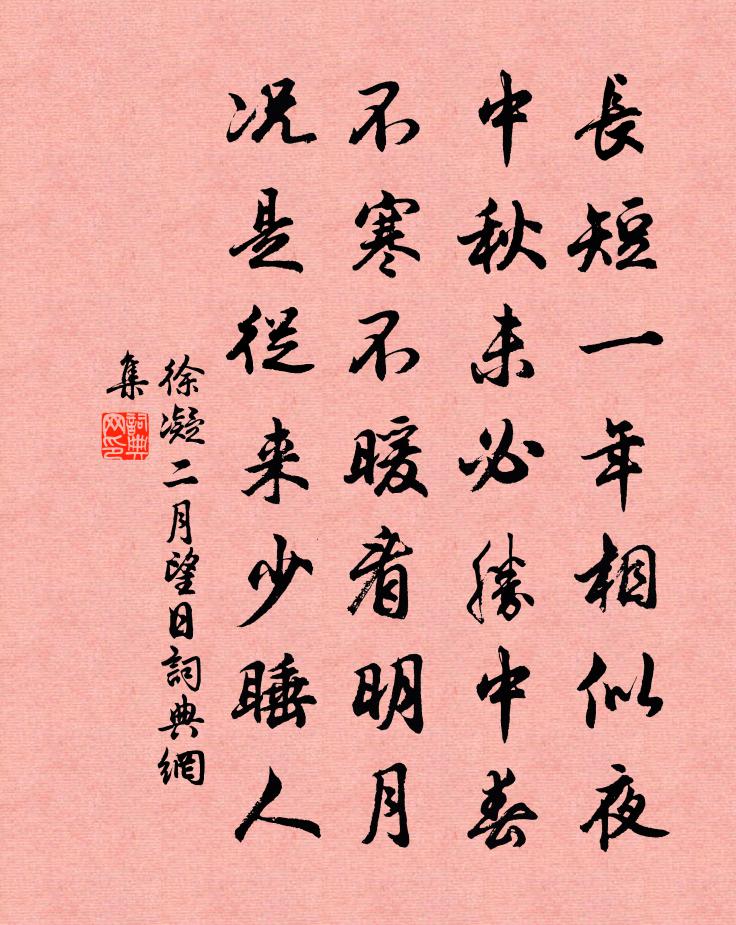 長短一年相似夜
中秋未必勝中春
不寒不暖看明月
况是從来少睡人
徐凝二月望日詞典網
集
詞典网印